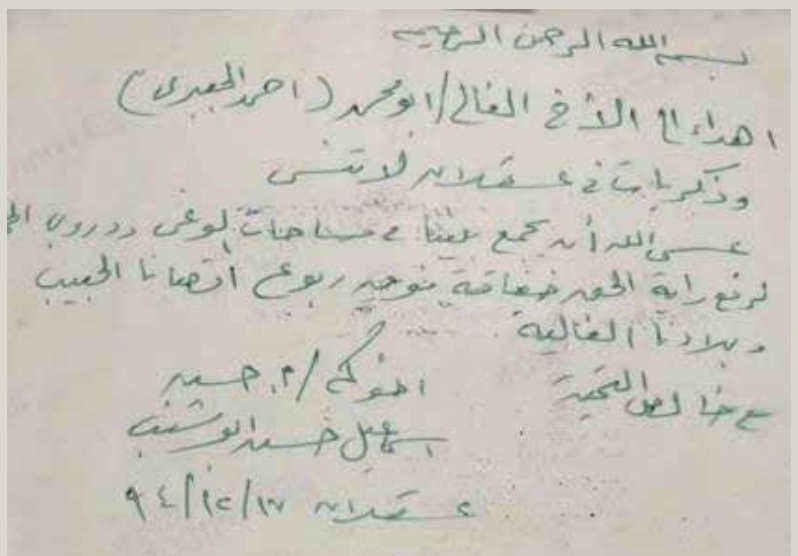 بسم الله الرحمن الرحيم
اهداء الى الأخ الغالي / ابو محمد (احمد الجعبري)
وذكريات في عسقلان لا تنسى
عسى الله أن يجمع بيننا في ساحات الوغى ودروب
لرفع راية الحق خفاقة فوق ربوع أقصانا الحبيب
وبلادنا الغالية
مع خالص التحية
اخوكم / م. حسن
اسماعيل حسن ابو شنب
عسقلان ١٧/١٢/٩٤